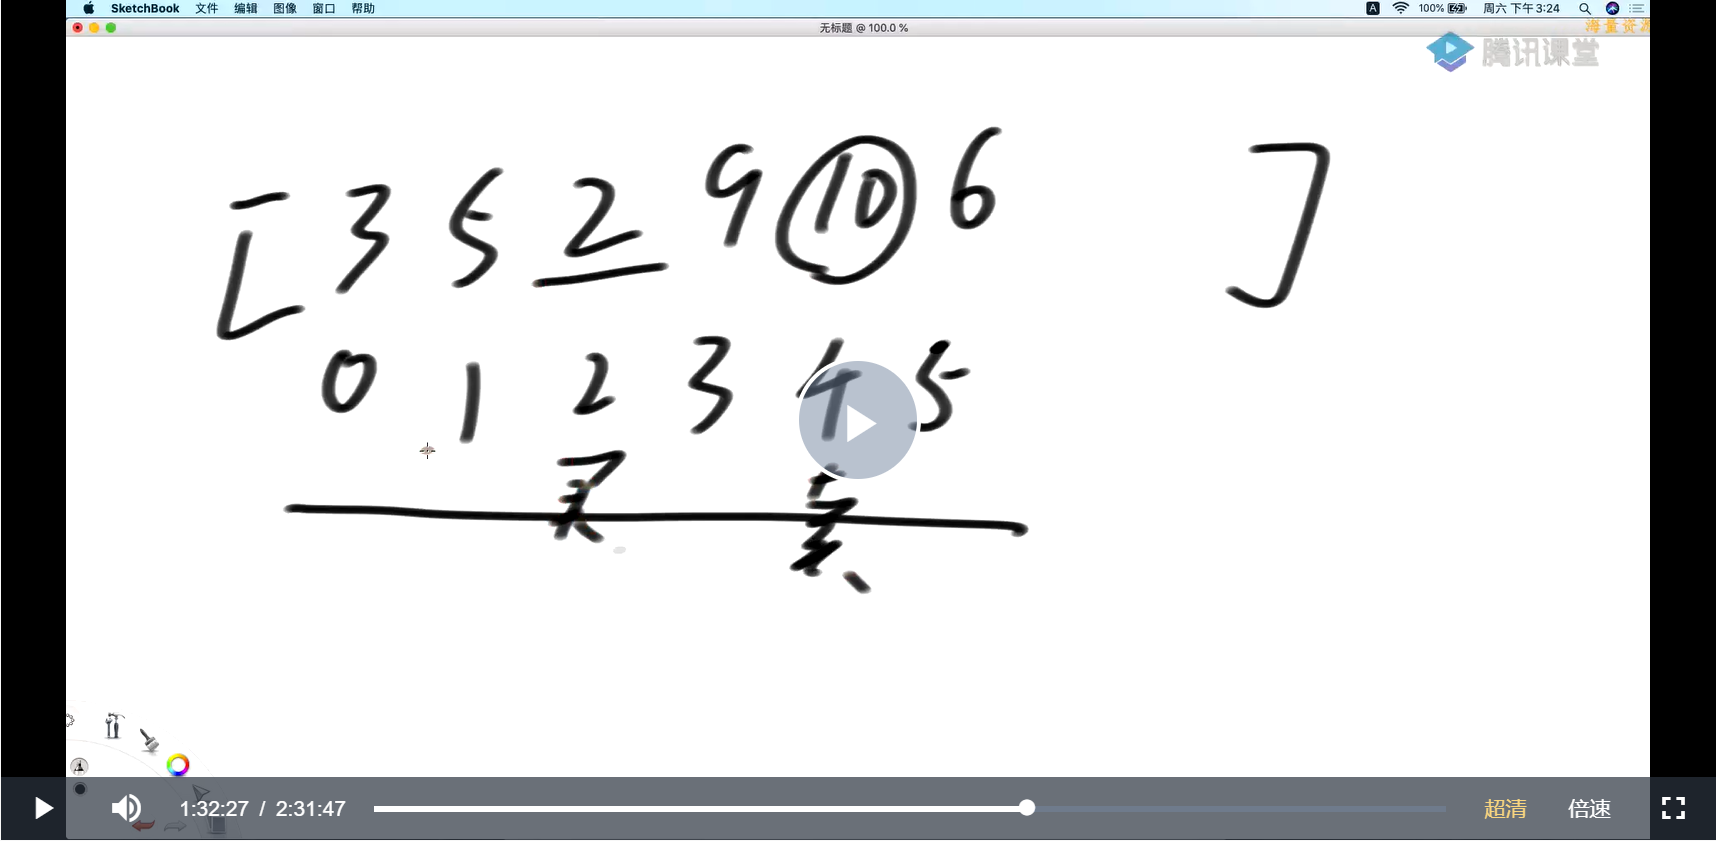 SketchBook 文件 编辑 图像 窗口 帮助 A 100% 周六 下午3:24
无标题 @ 100.0 %
海量资源
腾讯课堂
[ 3 5 2 9 10 6 ]
0 1 2 3 4 5
1:32:27 / 2:31:47 超清 倍速